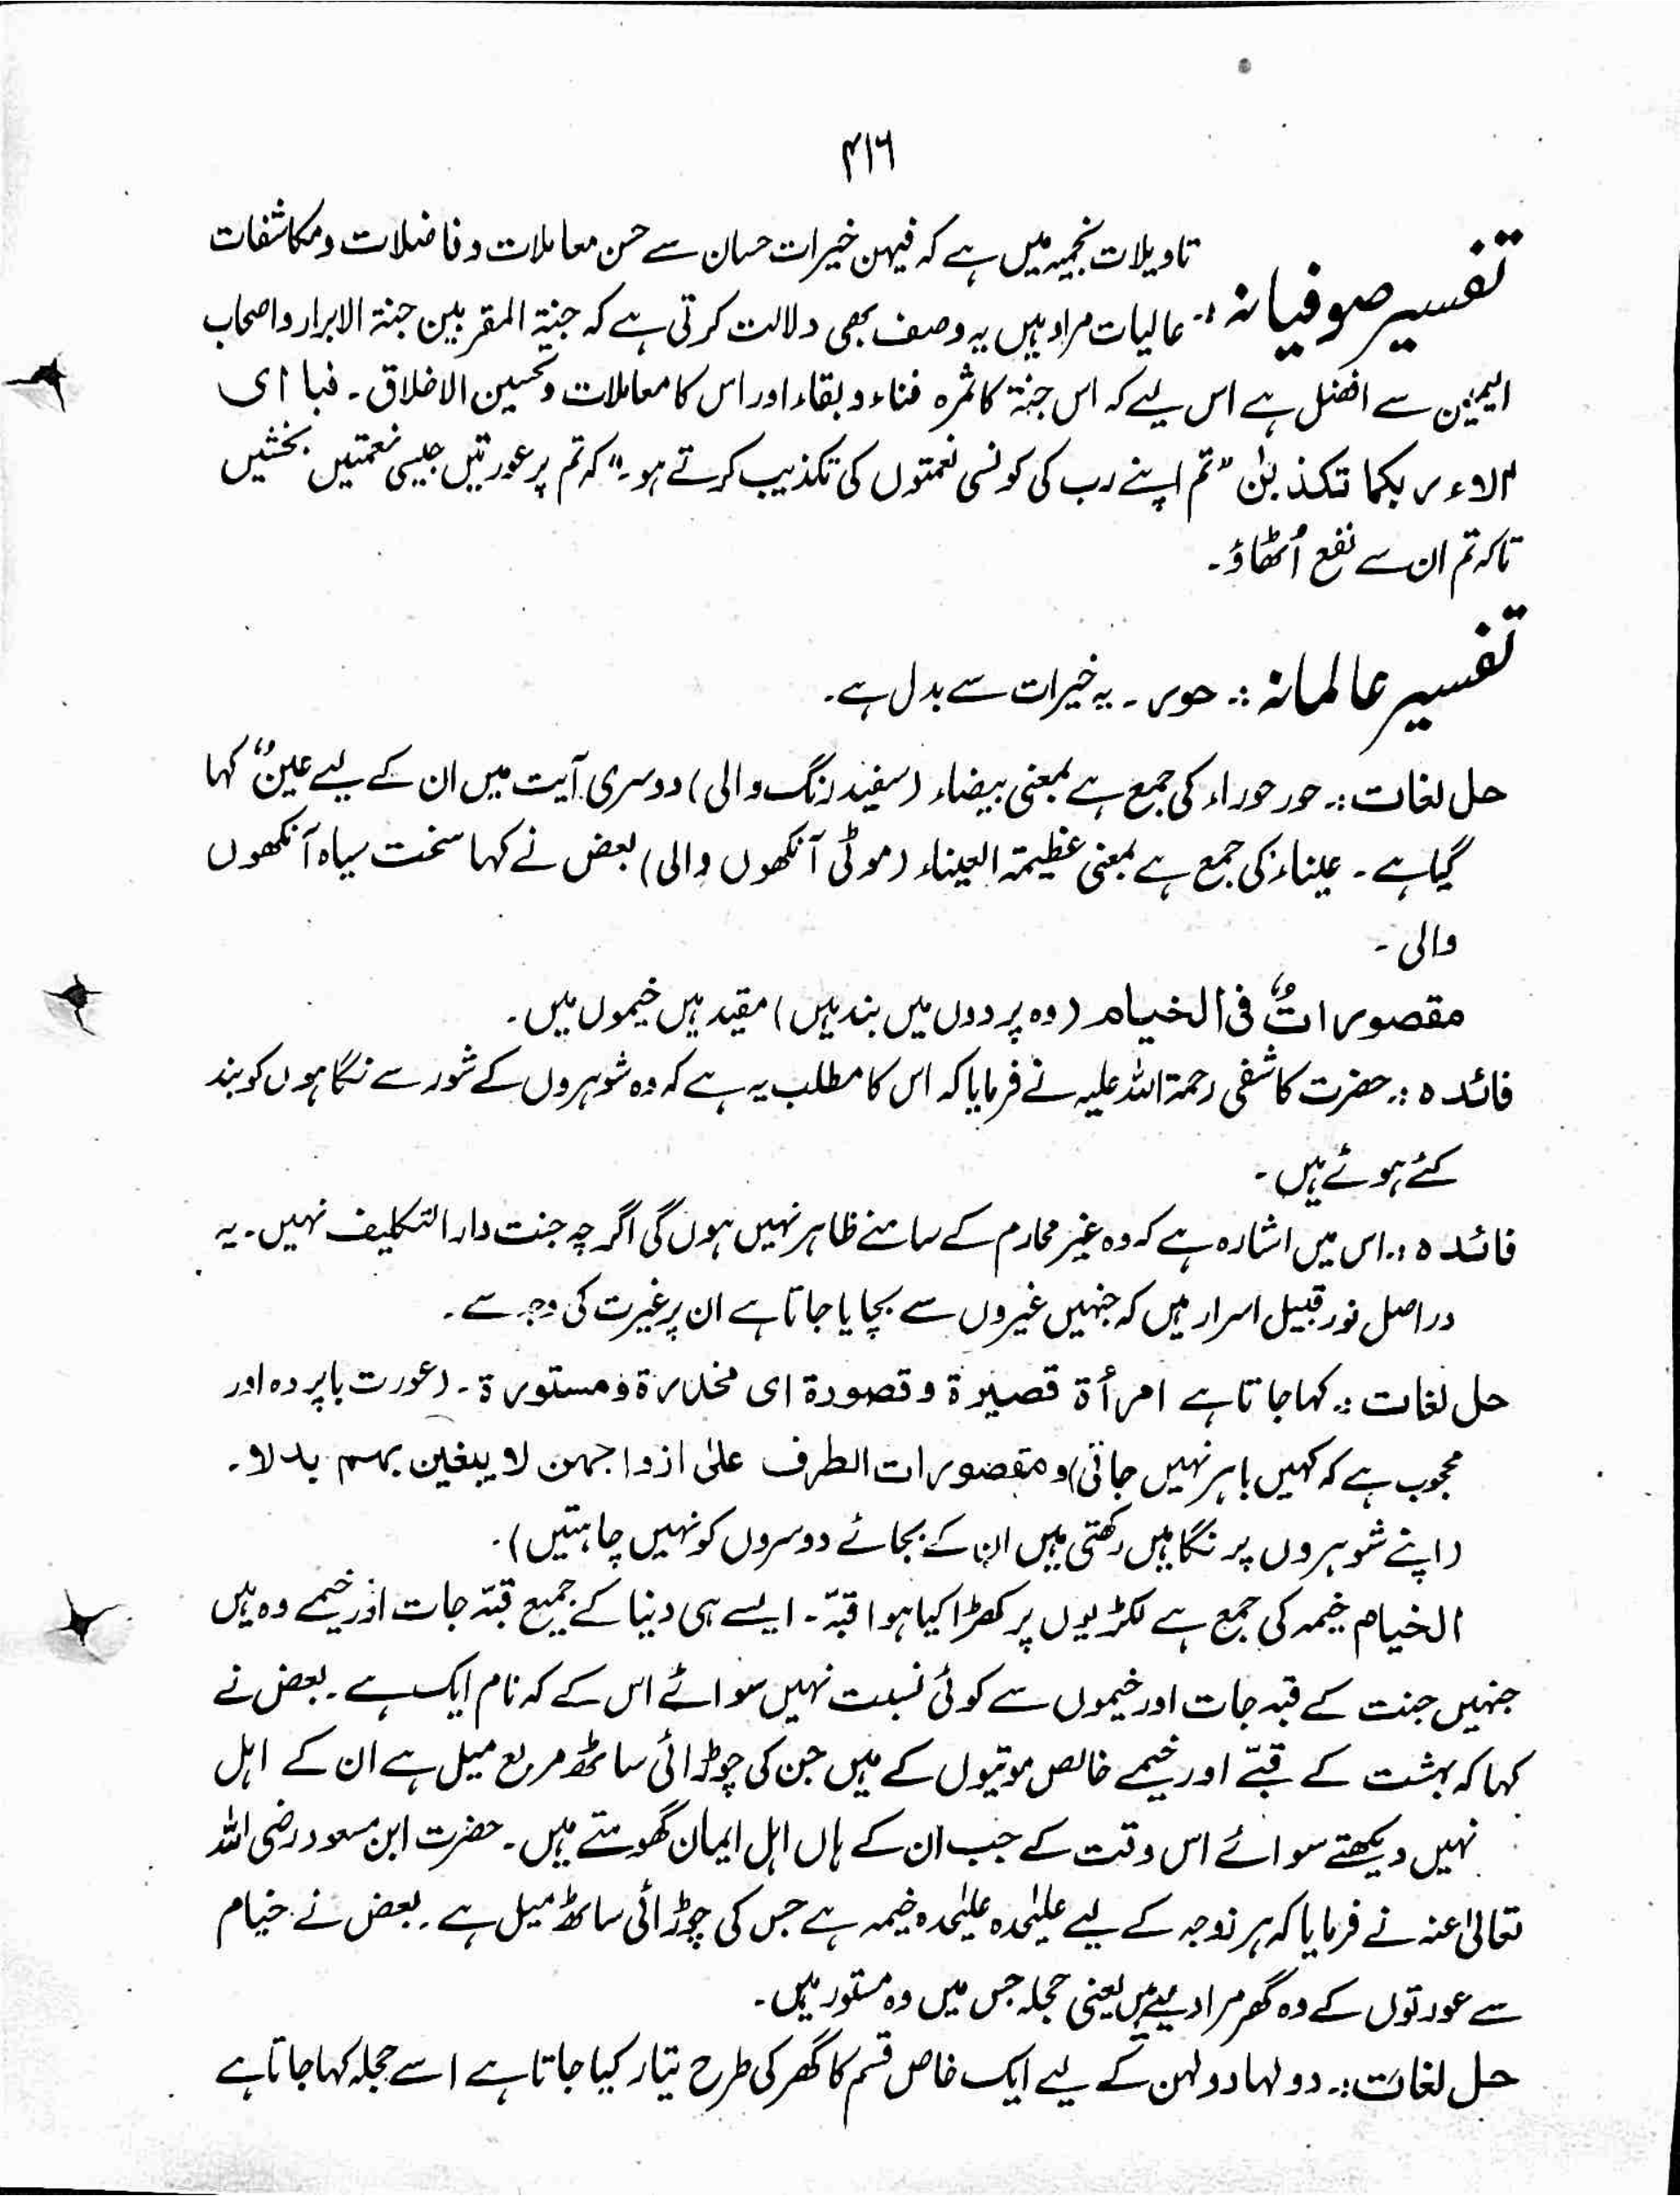 ۴۱۶
تفسیر صوفیانہ :۔ تاویلات نجمیہ میں ہے کہ فیہن خیرات حسان سے حسن معاملات و فاضلات و مکاشفات
عالیات مراد ہیں یہ وصف بھی دلالت کرتی ہے کہ جنۃ المقربین جنۃ الابرار و اصحاب
الیمین سے افضل ہے اس لیے کہ اس جنۃ کا ثمرہ فناء و بقاء اور اس کا معاملات و تحسین الاخلاق ۔ فبا ای
آلاء ربکما تکذبٰن ”تم اپنے رب کی کونسی نعمتوں کی تکذیب کرتے ہو۔“ کہ تم پر عورتیں جیسی نعمتیں بخشیں
تاکہ تم ان سے نفع اُٹھاؤ۔
تفسیر عالمانہ :۔ حور ۔ یہ خیرات سے بدل ہے۔
حل لغات :۔ حور حوراء کی جمع ہے بمعنی بیضاء (سفید رنگ والی) دوسری آیت میں ان کے لیے عینٌ کہا
گیا ہے ۔ عیناء کی جمع ہے بمعنی عظیمۃ العیناء (موٹی آنکھوں والی) بعض نے کہا سخت سیاہ آنکھوں
والی ۔
مقصوراتٌ فی الخیام (وہ پردوں میں بند ہیں) مقید ہیں خیموں میں ۔
فائدہ :۔ حضرت کاشفی رحمۃ اللہ علیہ نے فرمایا کہ اس کا مطلب یہ ہے کہ وہ شوہروں کے شور سے نگاہوں کو بند
کئے ہوئے ہیں ۔
فائدہ :۔ اس میں اشارہ ہے کہ وہ غیر محارم کے سامنے ظاہر نہیں ہوں گی اگرچہ جنت دار التکلیف نہیں ۔ یہ
دراصل نور قبیل اسرار ہیں کہ جنہیں غیروں سے بچایا جاتا ہے ان پر غیرت کی وجہ سے ۔
حل لغات :۔ کہا جاتا ہے امرأۃ قصیرۃ و قصورۃ ای مخدرۃ و مستورۃ ۔ (عورت باپردہ اور
محجوب ہے کہ کہیں باہر نہیں جاتی) و مقصورات الطرف علیٰ ازواجہن لا یبغین بہم بدلا ۔
(اپنے شوہروں پر نگاہیں رکھتی ہیں ان کے بجائے دوسروں کو نہیں چاہتیں) ۔
الخیام خیمہ کی جمع ہے لکڑیوں پر کھڑا کیا ہوا قبّہ ۔ ایسے ہی دنیا کے جمیع قبّہ جات اور خیمے وہ ہیں
جنہیں جنت کے قبہ جات اور خیموں سے کوئی نسبت نہیں سوائے اس کے کہ نام ایک ہے ۔ بعض نے
کہا کہ بہشت کے قبّے اور خیمے خالص موتیوں کے ہیں جن کی چوڑائی ساٹھ مربع میل ہے ان کے اہل
نہیں دیکھتے سوائے اس وقت کے جب ان کے ہاں اہل ایمان گھومتے ہیں ۔ حضرت ابن مسعود رضی اللہ
تعالیٰ عنہ نے فرمایا کہ ہر زوجہ کے لیے علیٰحدہ علیٰحدہ خیمہ ہے جس کی چوڑائی ساٹھ میل ہے ۔ بعض نے خیام
سے عورتوں کے وہ گھر مراد لیے ہیں یعنی حجلہ جس میں وہ مستور ہیں ۔
حل لغات :۔ دولہا دولہن کے لیے ایک خاص قسم کا گھر کی طرح تیار کیا جاتا ہے اسے حجلہ کہا جاتا ہے